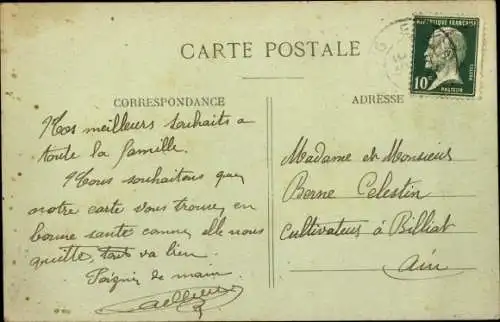 CARTE POSTALE
REPUBLIQUE FRANÇAISE
10c
PASTEUR
CORRESPONDANCE
Nos meilleurs souhaits a
toute la famille.
Nous souhaitons que
notre carte vous trouve en
bonne santé comme elle nous
quitte, tout va bien.
Poignée de main
ADRESSE
Madame et Monsieur
Berne Celestin
Cultivateurs à Billiat
Ain